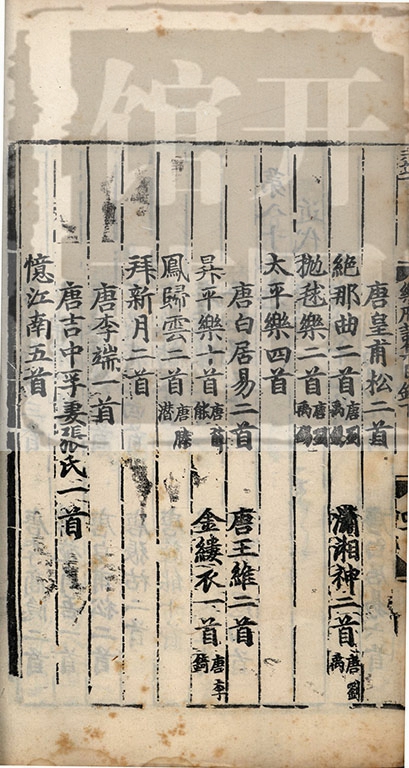 唐皇甫松二首
絶那曲二首 唐劉禹錫 瀟湘神二首 唐劉禹
抛毬樂二首 唐劉禹錫
太平樂四首
唐白居易二首 唐王維二首
昇平樂十首 唐薛能 金縷衣一首 唐李錡
鳳歸雲二首 唐滕潛
拜新月二首
唐李端一首
唐吉中孚妻張氏一首
憶江南五首